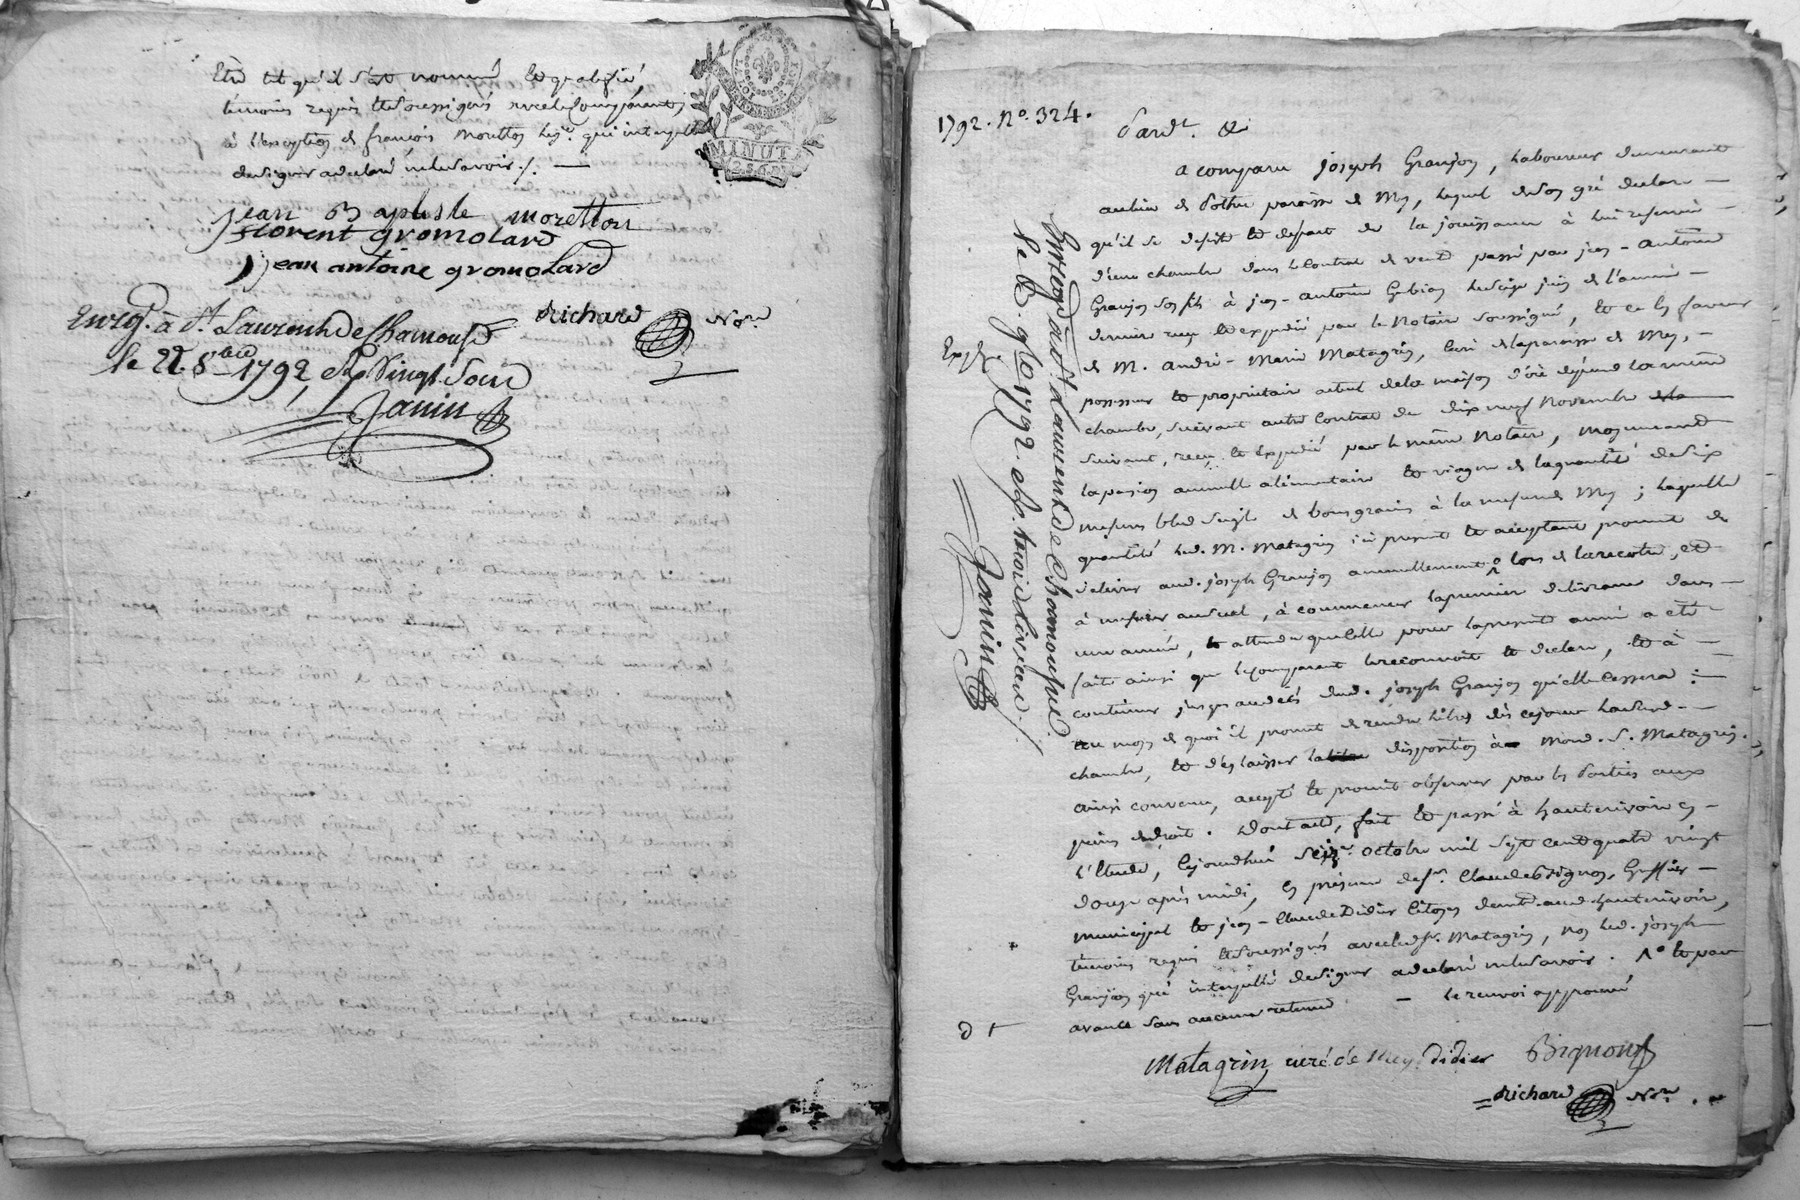 être tel qu'il s'est nommé et qualifié,
témoins requis et soussignés avec les comparants,
à l'exception de françois Moretton qui interpellé
de signer a déclaré ne le savoir ./. —
jean Baptiste moretton
florent gromolard
jean antoine gromolard
richard Nore
Enregt. à St. Laurent de Chamousset
le 22. 8bre 1792, vingt sous
Janin
MINUT.
1792. No. 324.
Pardt. &
a comparu joseph Granjon, laboureur demeurant
au lieu de paroisse de Mey, lequel de son gré declare —
qu'il se desiste et depart de la jouissance à lui reservée
d'une chambre dans le contrat de vente passé par jean - antoine
Granjon son fils à jean - antoine le seize juin de l'année —
dernière reçu et expedié par le Notaire soussigné, et ce en faveur
de M. andré - Marie Matagrin, curé de la paroisse de Mey, —
possesseur et proprietaire actuel de la maison d'où depend la même
chambre, suivant autre contrat du dix neuf Novembre
suivant, reçu et expedié par le même Notaire, moyennant
la pension annuelle alimentaire et viagere de la quantité de six
mesures bled seigle de bons grains à la mesure de Mey ; laquelle
quantité led. M. Matagrin ici present et acceptant promet de
delivrer aud. joseph Granjon annuellement lors de la recolte, et
à mesure, à commencer la premiere delivrance dans —
une année, attendu que celle pour la presente année a eté
faite ainsi que le comparant le reconnoit et declare, et à —
continuer jusqu'au decès dud. joseph Granjon qu'elle cessera : —
au moyen de quoi il promet de rendre libre dès ce jour lad. —
chambre, et d'en laisser la disposition à mond. S. Matagrin.
ainsi convenu, accepté et promis observer par les parties aux
peines de droit. Dont acte, fait et passé à hauterivoire en —
l'etude, ce jourd'hui seize octobre mil sept cent quatre vingt
douze après midi, en presence de sr. Claude Bignon, Greffier —
municipal et jean - Claude Didier citoyen demt. aud. hauterivoire,
temoins requis et soussignés avec led. sr. Matagrin, non led. joseph
Granjon qui interpellé de signer a declaré ne le savoir.
avance sans aucune retenue — le renvoi approuvé
Matagrin curé de Mey. Didier Bignon
richard Nore
Expé
Enregt. à St. Laurent de Chamousset
1792.
Janin